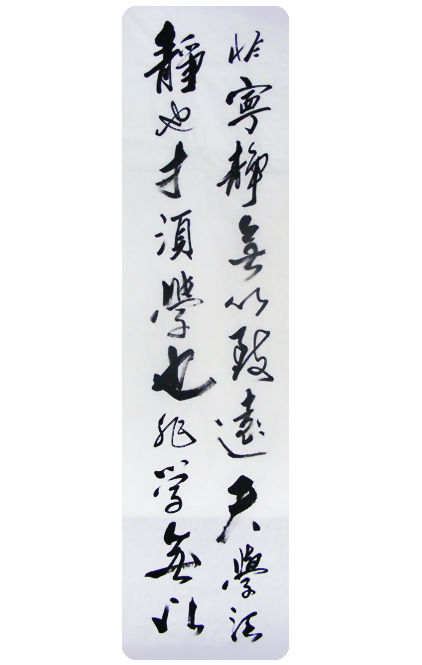 非寧靜無以致遠夫學須
靜也才須學也非學無以